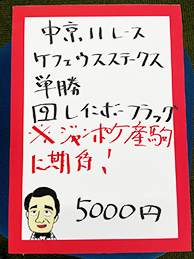 中京11レース
ケフェウスステークス
単勝
四レインボーフラッグ
※ジャンポケ産駒
に期待!
5000円